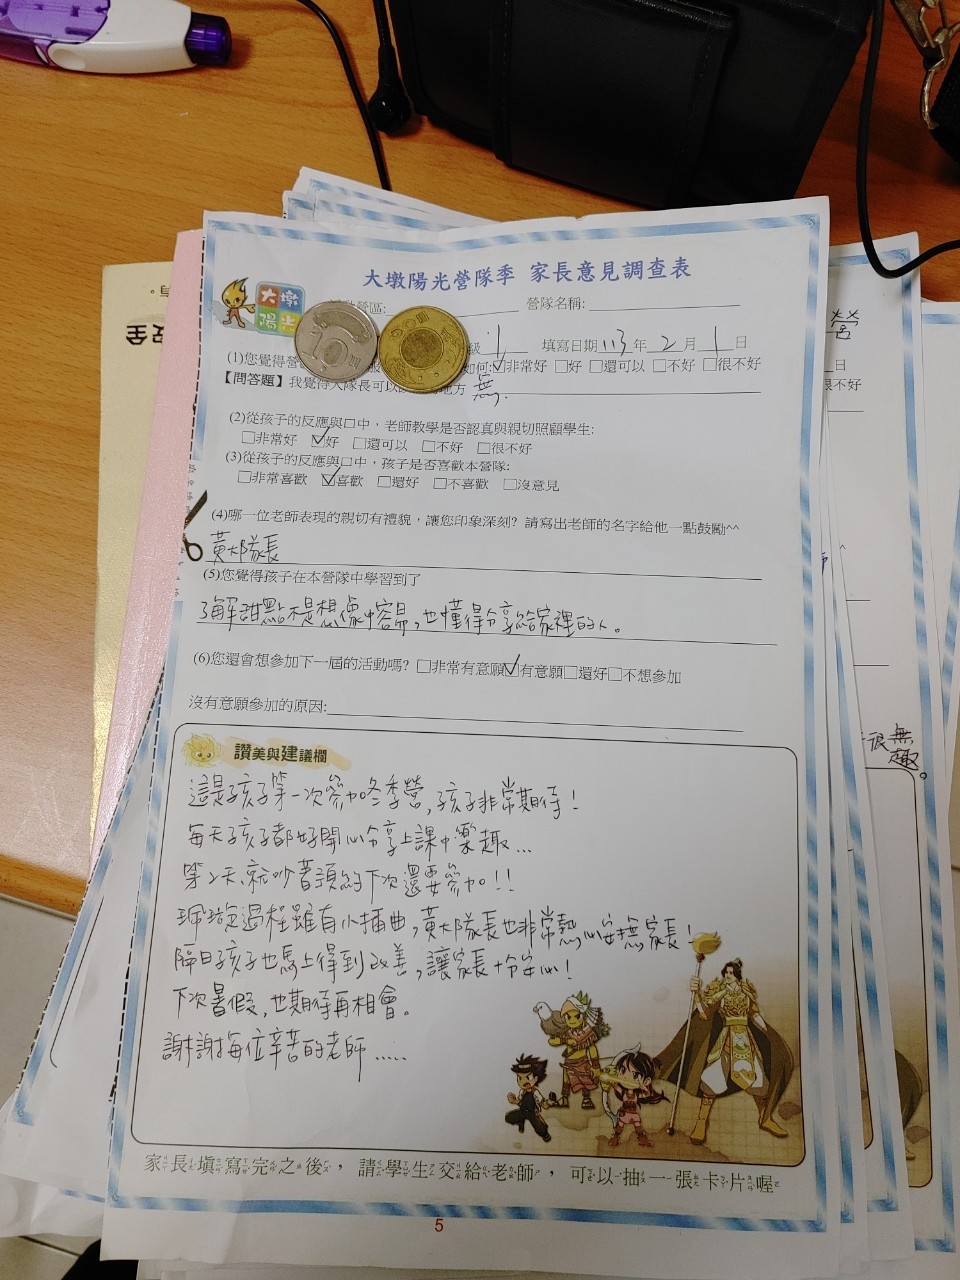 大墩陽光營隊季 家長意見調查表
大墩
陽光
營區: 營隊名稱:
10
50
級 1 填寫日期 113 年 2 月 1 日
(1)您覺得營 如何:☑非常好 □好 □還可以 □不好 □很不好
【問答題】我覺得大隊長可以 地方 無.
(2)從孩子的反應與口中，老師教學是否認真與親切照顧學生:
□非常好 ☑好 □還可以 □不好 □很不好
(3)從孩子的反應與口中，孩子是否喜歡本營隊:
□非常喜歡 ☑喜歡 □還好 □不喜歡 □沒意見
(4)哪一位老師表現的親切有禮貌，讓您印象深刻? 請寫出老師的名字給他一點鼓勵^^
黃大隊長
(5)您覺得孩子在本營隊中學習到了
了解甜點不是想像中容易，也懂得分享給家裡的人。
(6)您還會想參加下一屆的活動嗎? □非常有意願☑有意願□還好□不想參加
沒有意願參加的原因:
讚美與建議欄
這是孩子第一次參加冬季營，孩子非常期待！
每天孩子都好開心分享上課中樂趣...
第2天、就吵著預約下次還要參加！！
過程雖有小插曲，黃大隊長也非常熱心安撫家長！
隔日孩子也馬上得到改善，讓家長十分安心！
下次暑假，也期待再相會。
謝謝每位辛苦的老師.....
家長填寫完之後，請學生交給老師，可以抽一張卡片喔
5
營
日
很不好
很無趣。
安全